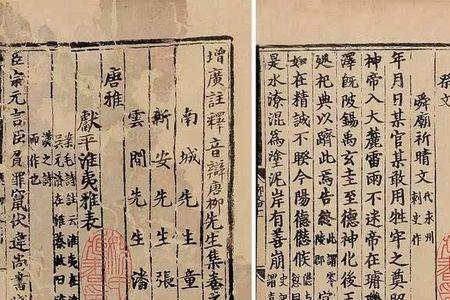 祭文
舜廟祈晴文 代永州刺史作
年月日某官某敢用牲牢之奠昭
神帝入大麓雷雨不迷帝在璿璣
澤既陂錫禹玄圭至德神化後
祀典以躋此焉告終
如在精誠不暌今陽德愆候
是水潦混為塗泥岸有善崩
增廣註釋音辯唐柳先生集卷之
南城先生童
新安先生張
雲間先生潘
唐雅
獻平淮夷雅表
臣宗元言臣負罪竄伏違尚書